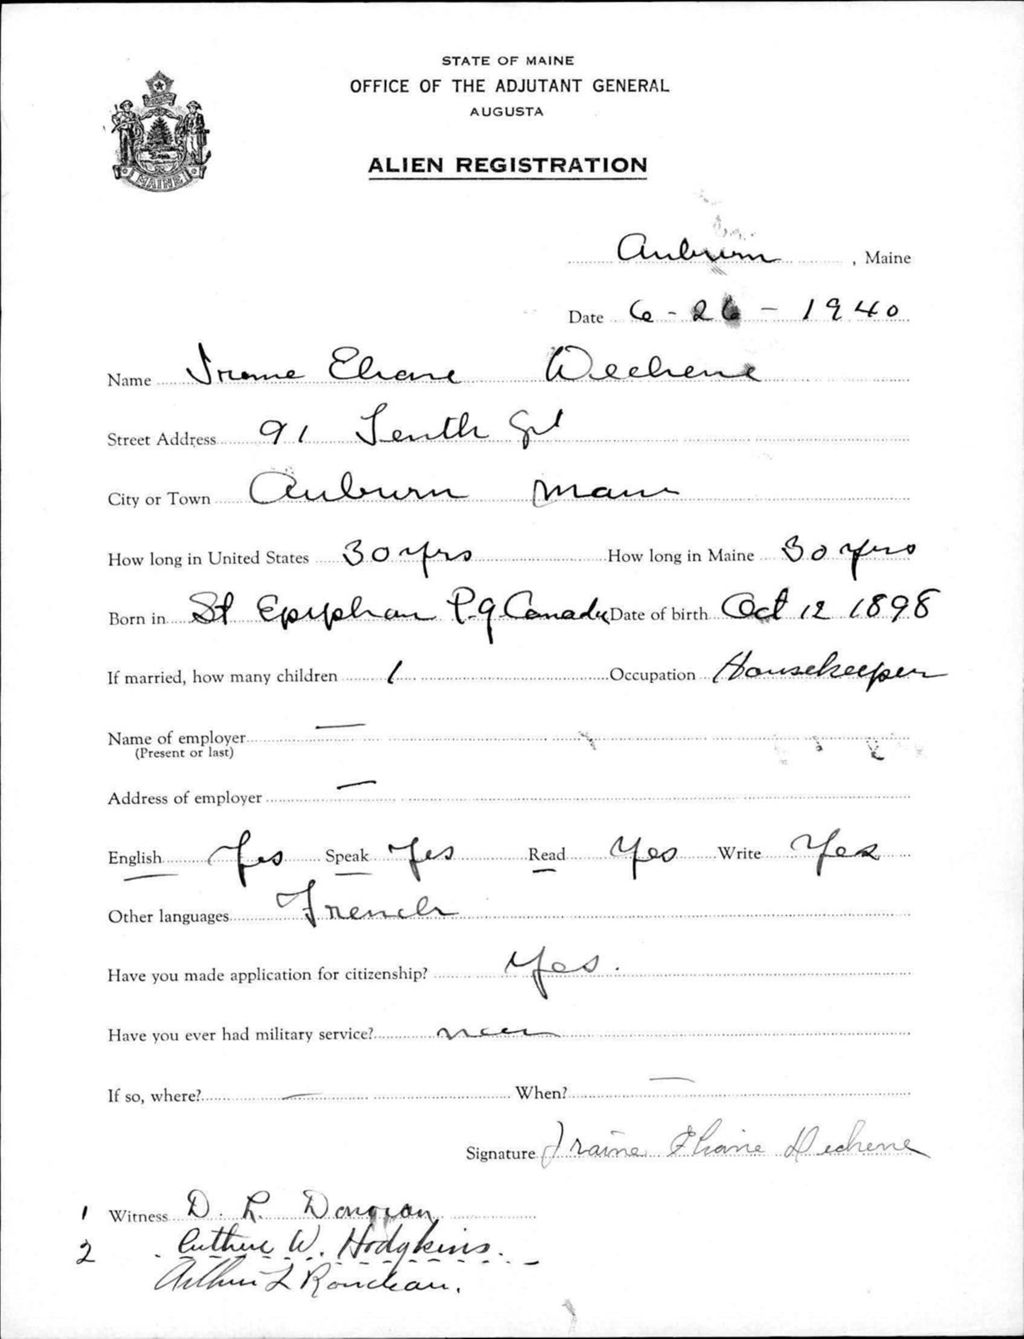 STATE OF MAINE
OFFICE OF THE ADJUTANT GENERAL
AUGUSTA
MAINE
ALIEN REGISTRATION
Auburn, Maine
Date 6-26-1940
Name Eliane Dechene
Street Address 91 Tenth St
City or Town Auburn Maine
How long in United States 30 yrs How long in Maine 30 yrs
Born in St Epiphan P.Q Canada Date of birth Oct 12 1898
If married, how many children 1 Occupation Housekeeper
Name of employer —
(Present or last)
Address of employer —
English Yes Speak Yes Read Yes Write Yes
Other languages French
Have you made application for citizenship? Yes.
Have you ever had military service?
If so, where? — When? —
Signature Iraine Eliane Dechene
1 Witness D. L. Donovan
2 Arthur W. Hodgkins.
Arthur L Rondeau.